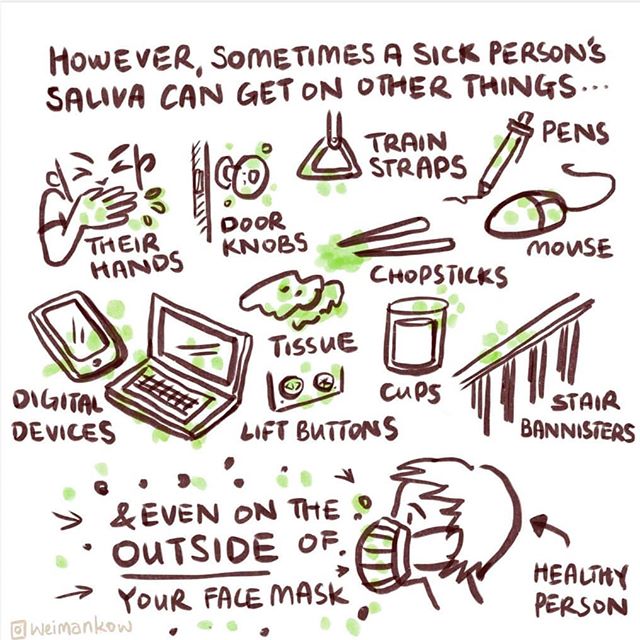 HOWEVER, SOMETIMES A SICK PERSON'S
SALIVA CAN GET ON OTHER THINGS...
THEIR
HANDS
DOOR
KNOBS
TRAIN
STRAPS
PENS
MOUSE
CHOPSTICKS
DIGITAL
DEVICES
TISSUE
LIFT BUTTONS
CUPS
STAIR
BANNISTERS
& EVEN ON THE
OUTSIDE OF
YOUR FACE MASK
HEALTHY
PERSON
weimankow